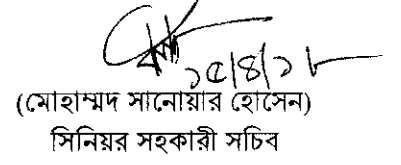 ১৫/৪/১৮
(মোহাম্মদ সানোয়ার হোসেন)
সিনিয়র সহকারী সচিব